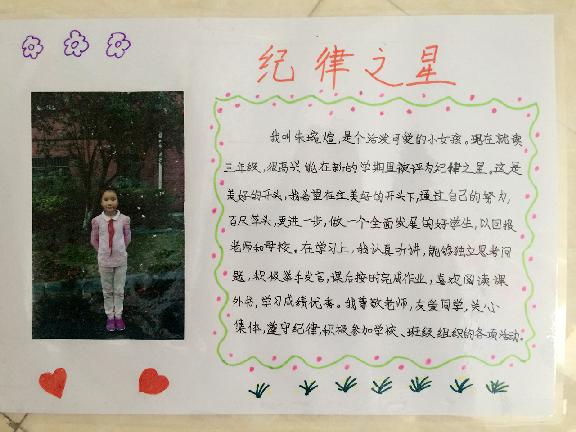 纪律之星
我叫朱琬煊,是个活泼可爱的小女孩。现在就读
三年级,很高兴能在新的学期里被评为纪律之星。这是
美好的开头,我希望在这美好的开头下,通过自己的努力,
百尺竿头,更进一步,做一个全面发展的好学生,以回报
老师和母校。在学习上,我认真听讲,能够独立思考问
题,积极举手发言,课后按时完成作业,喜欢阅读课
外书,学习成绩优秀。我尊敬老师,友爱同学,关心
集体,遵守纪律,积极参加学校、班级组织的各项活动。